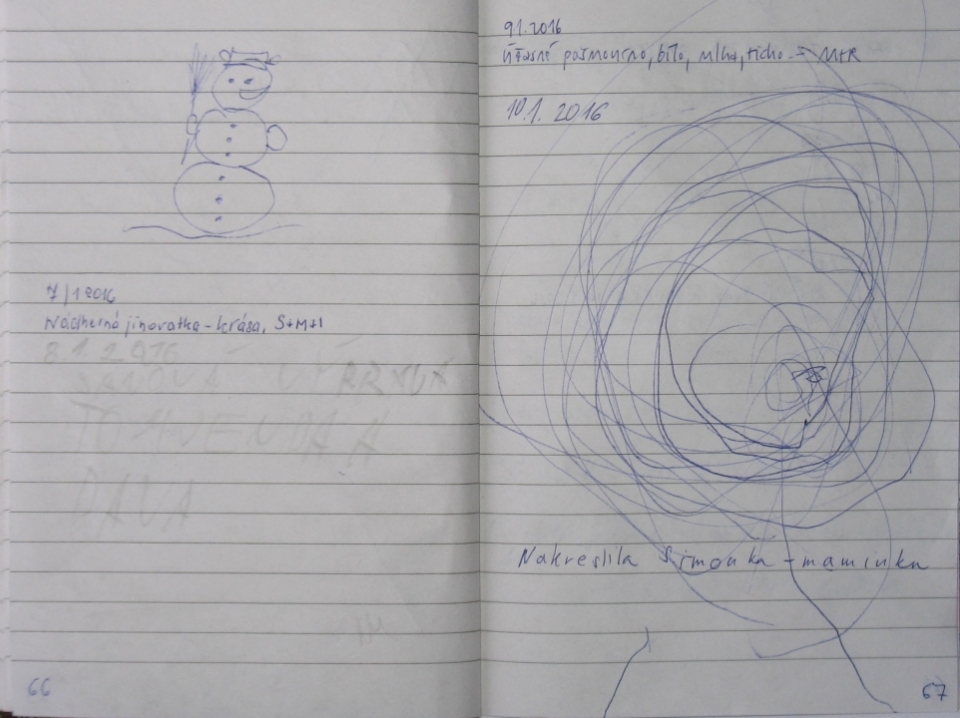 7/1 2016
Nádherná jinovatka - krása, S+M+I
8.1.2016
DAVA
66
9.1.2016
Úžasně pošmourno, bílo, mlha, ticho - M+R
10.1. 2016
Nakreslila Simonka - maminka
67